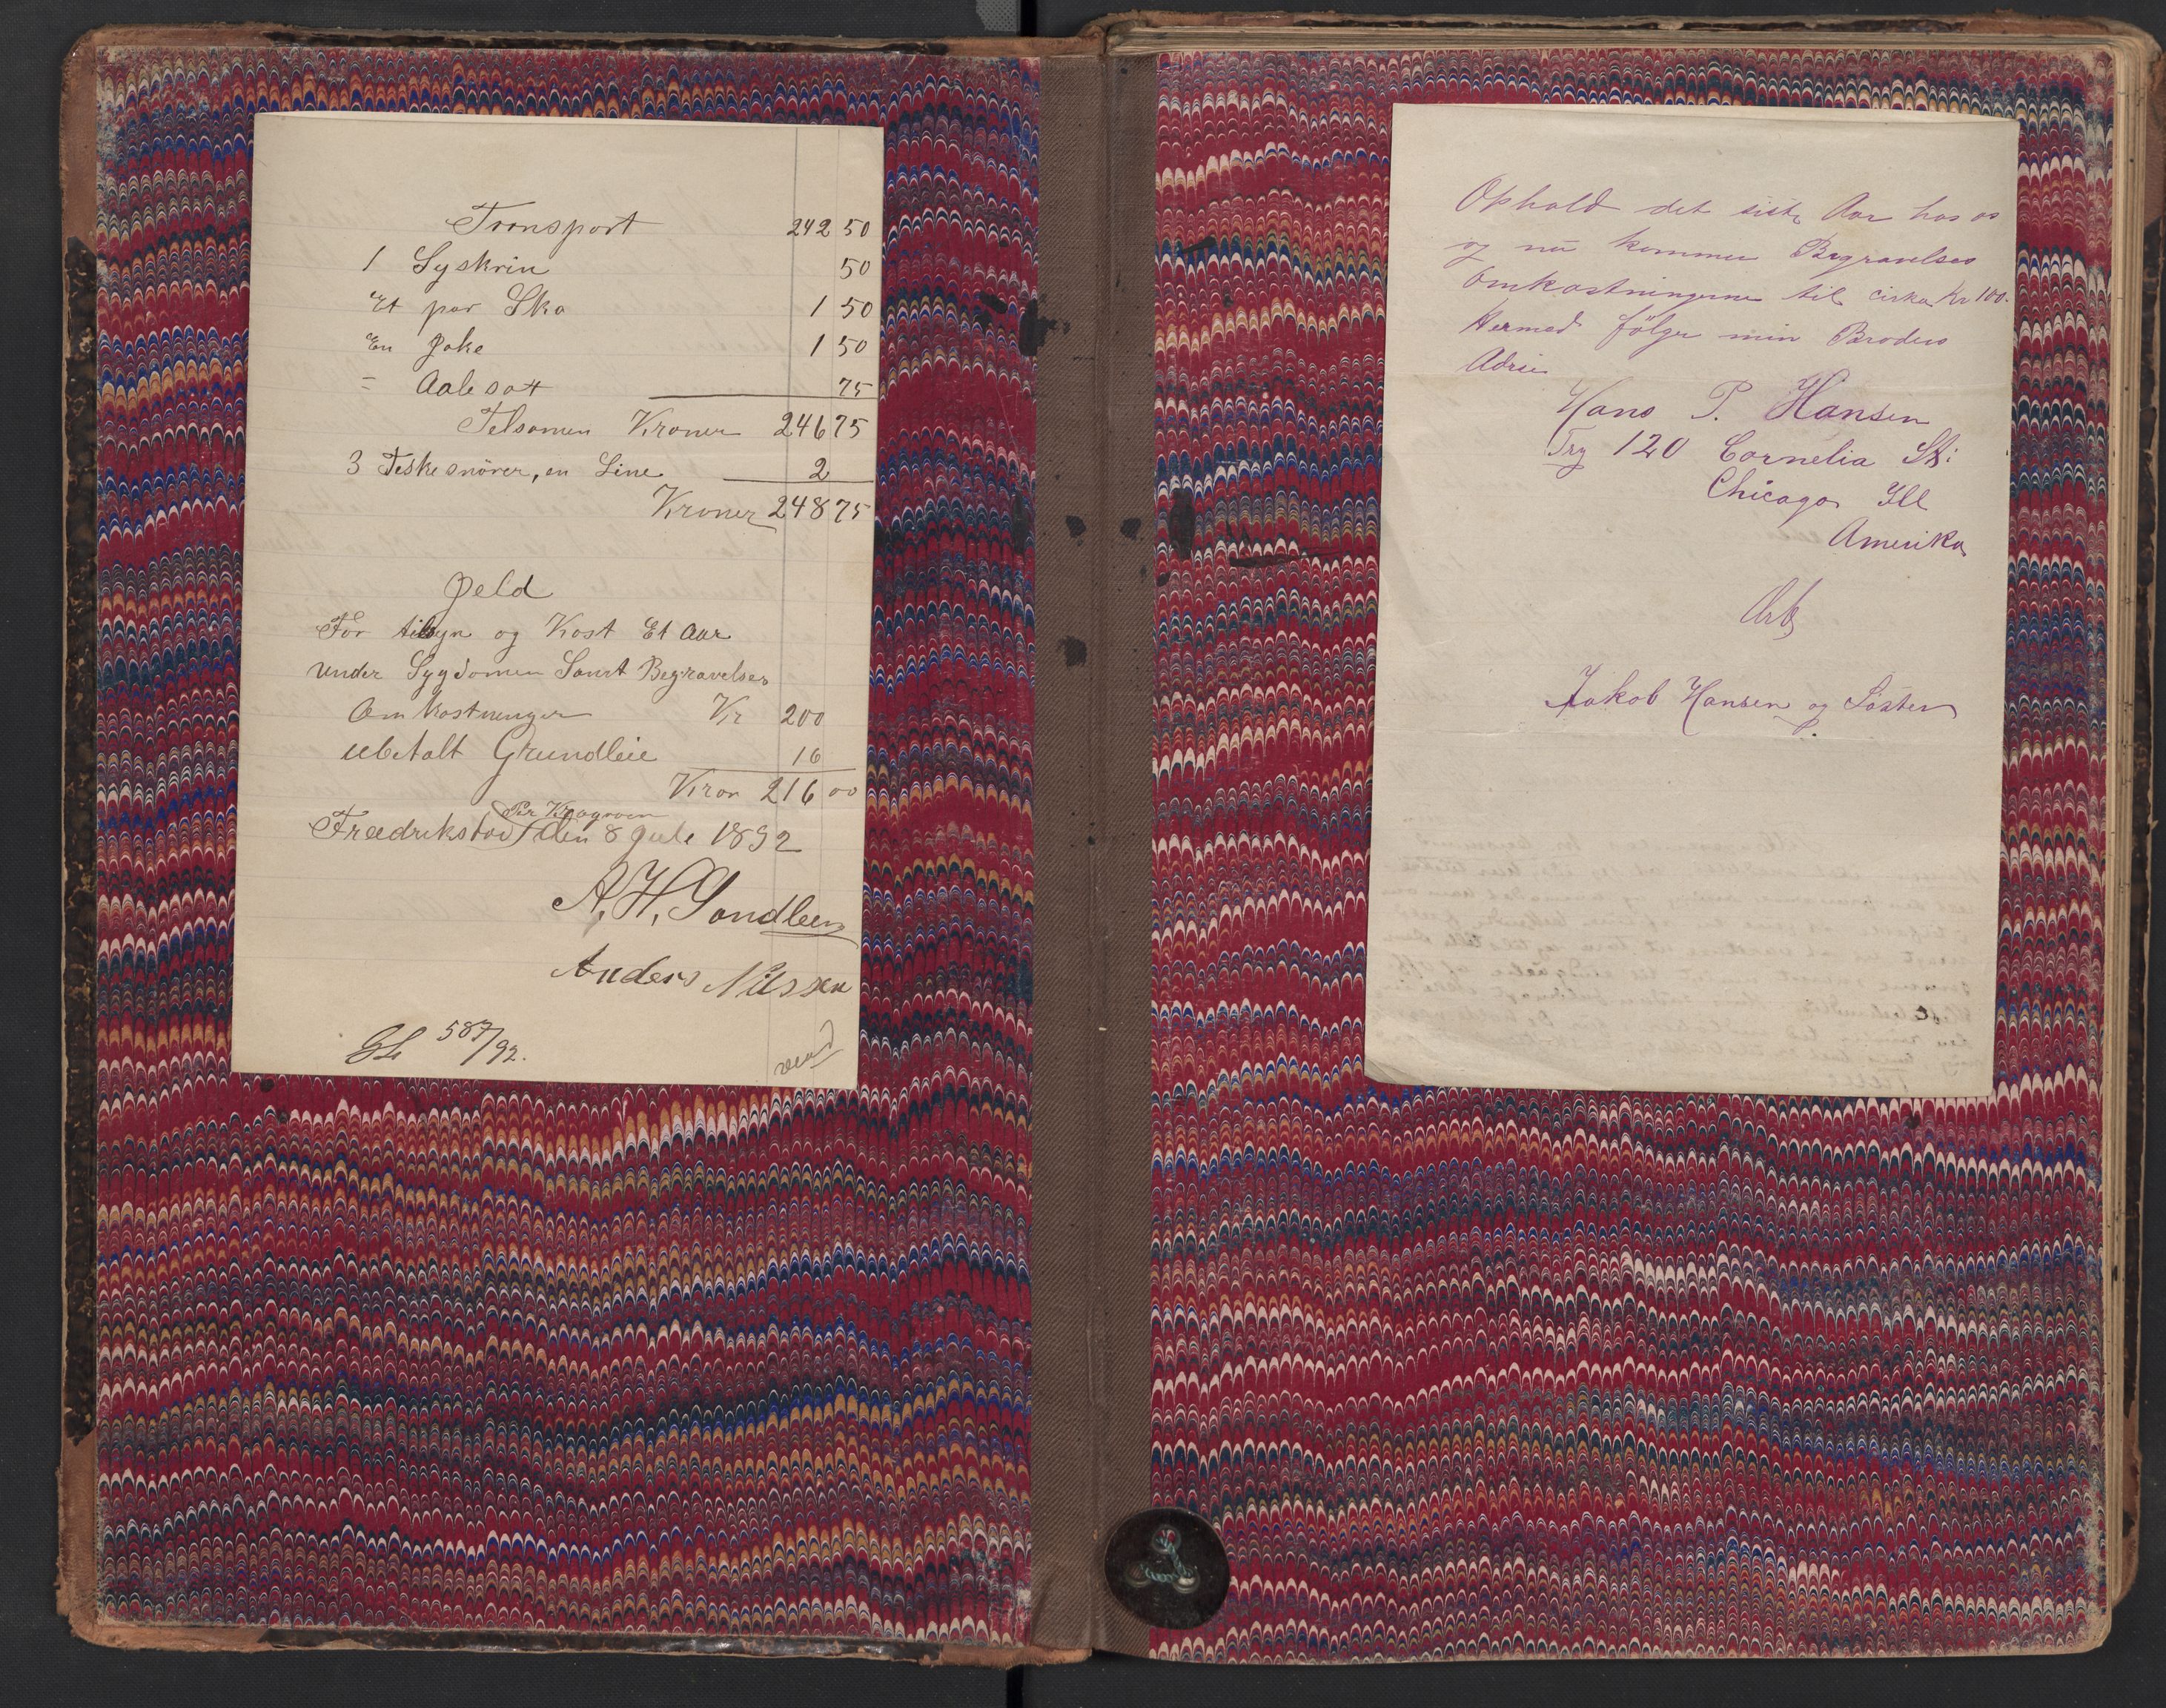 Transport 242 50
1 Syskrin 50
Et par Sko 1 50
En Jake 1 50
= Aalesax 75
Tilsamen Kroner 246 75
3 Fiskesnörer, en Line 2
Kroner 248 75
Gjeld
For tilsyn og Kost Et Aar
under Sygdomen Samt Begravelses
Omkostninger Kr 200
ubetalt Grundleie 16
Kron 216 00
Per Kragroen
Fredrikstad den 8 Juli 1892
A. H. Sandleen
Anders Nilssen
587/92.
vend
Ophold det siste Aar hos os
og nu kommer Begravelses
omkostningerne til cirka Kr 100.
Hermed følger min Broders
Adrie
Hans P. Hansen
Try 120 Cornelia St:
Chicago Ill
Amerika
Arb
Jakob Hansen og Söster